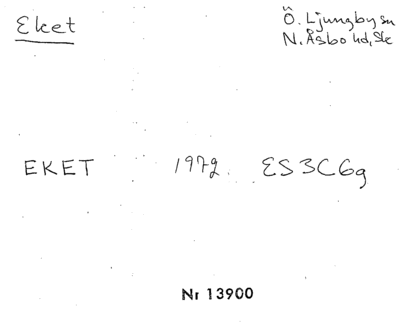 Eket
Ö. Ljungby sn
N. Åsbo hd, Sk
EKET 1972. ES3C6g
Nr 13900